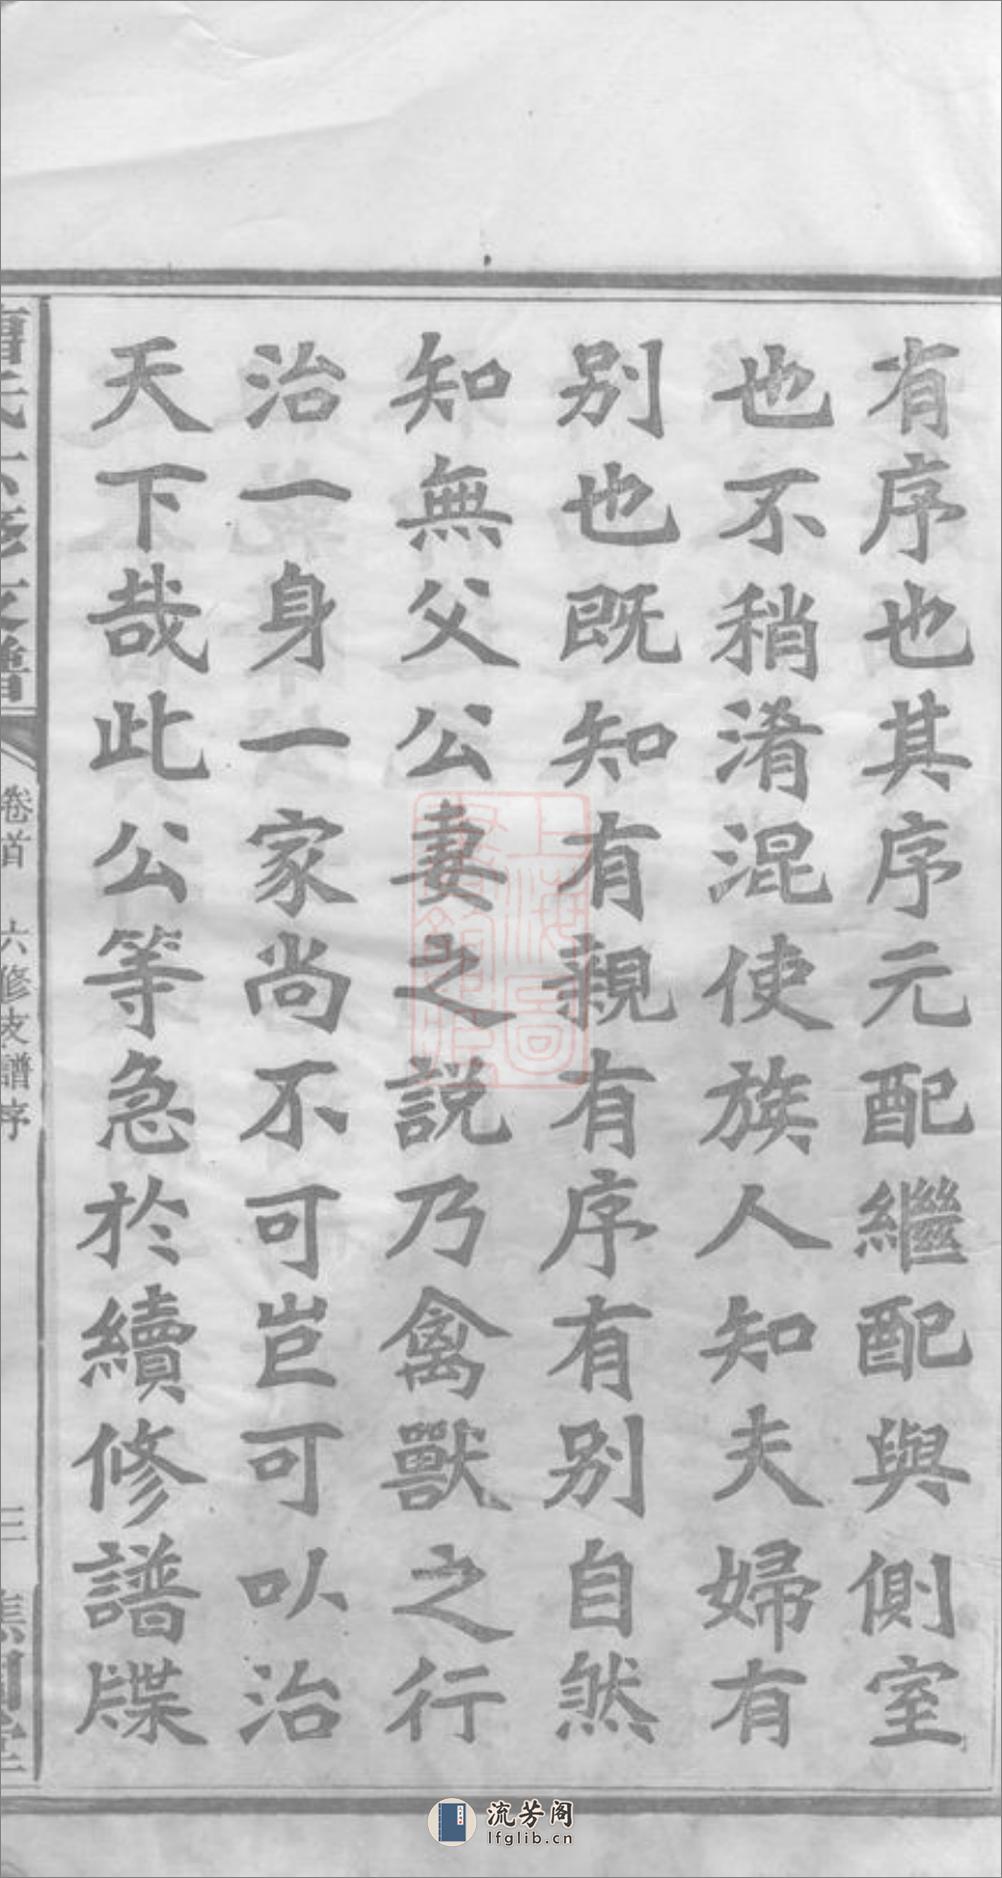 有序也其序元配繼配與側室
也不稍淆混使族人知夫婦有
別也既知有親有序有別自然
知無父公妻之説乃禽獸之行
治一身一家尚不可豈可以治
天下哉此公等急於續修譜牒
氏六修支譜
卷首 六修支譜序
三
流芳阁
lfglib.cn